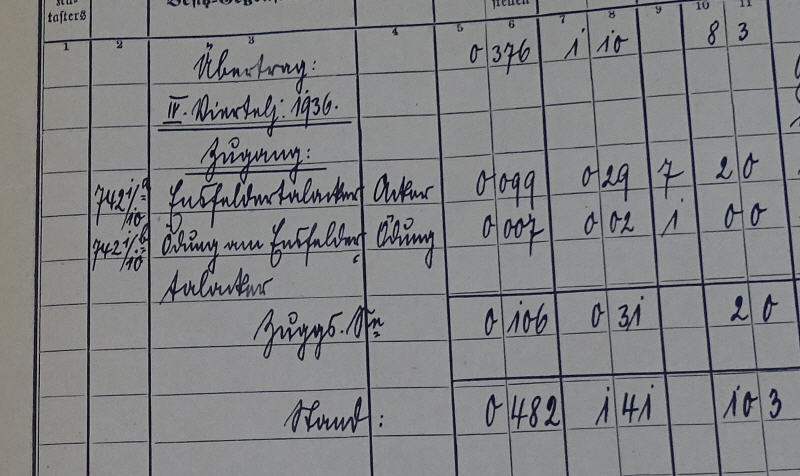 tasters
1 2 3 4 5 6 7 8 9 10 11
Übertrag: 0 376 1 10 8 3
IV. Viertelj. 1936.
Zugang:
742 1/10 a Ensfeldertalacker Acker 0 099 0 29 7 2 0
742 1/10 b Ödung am Ensfelder Ödung 0 007 0 02 1 0 0
talacker
Zuggs. Sn 0 106 0 31 2 0
Stand: 0 482 1 41 10 3